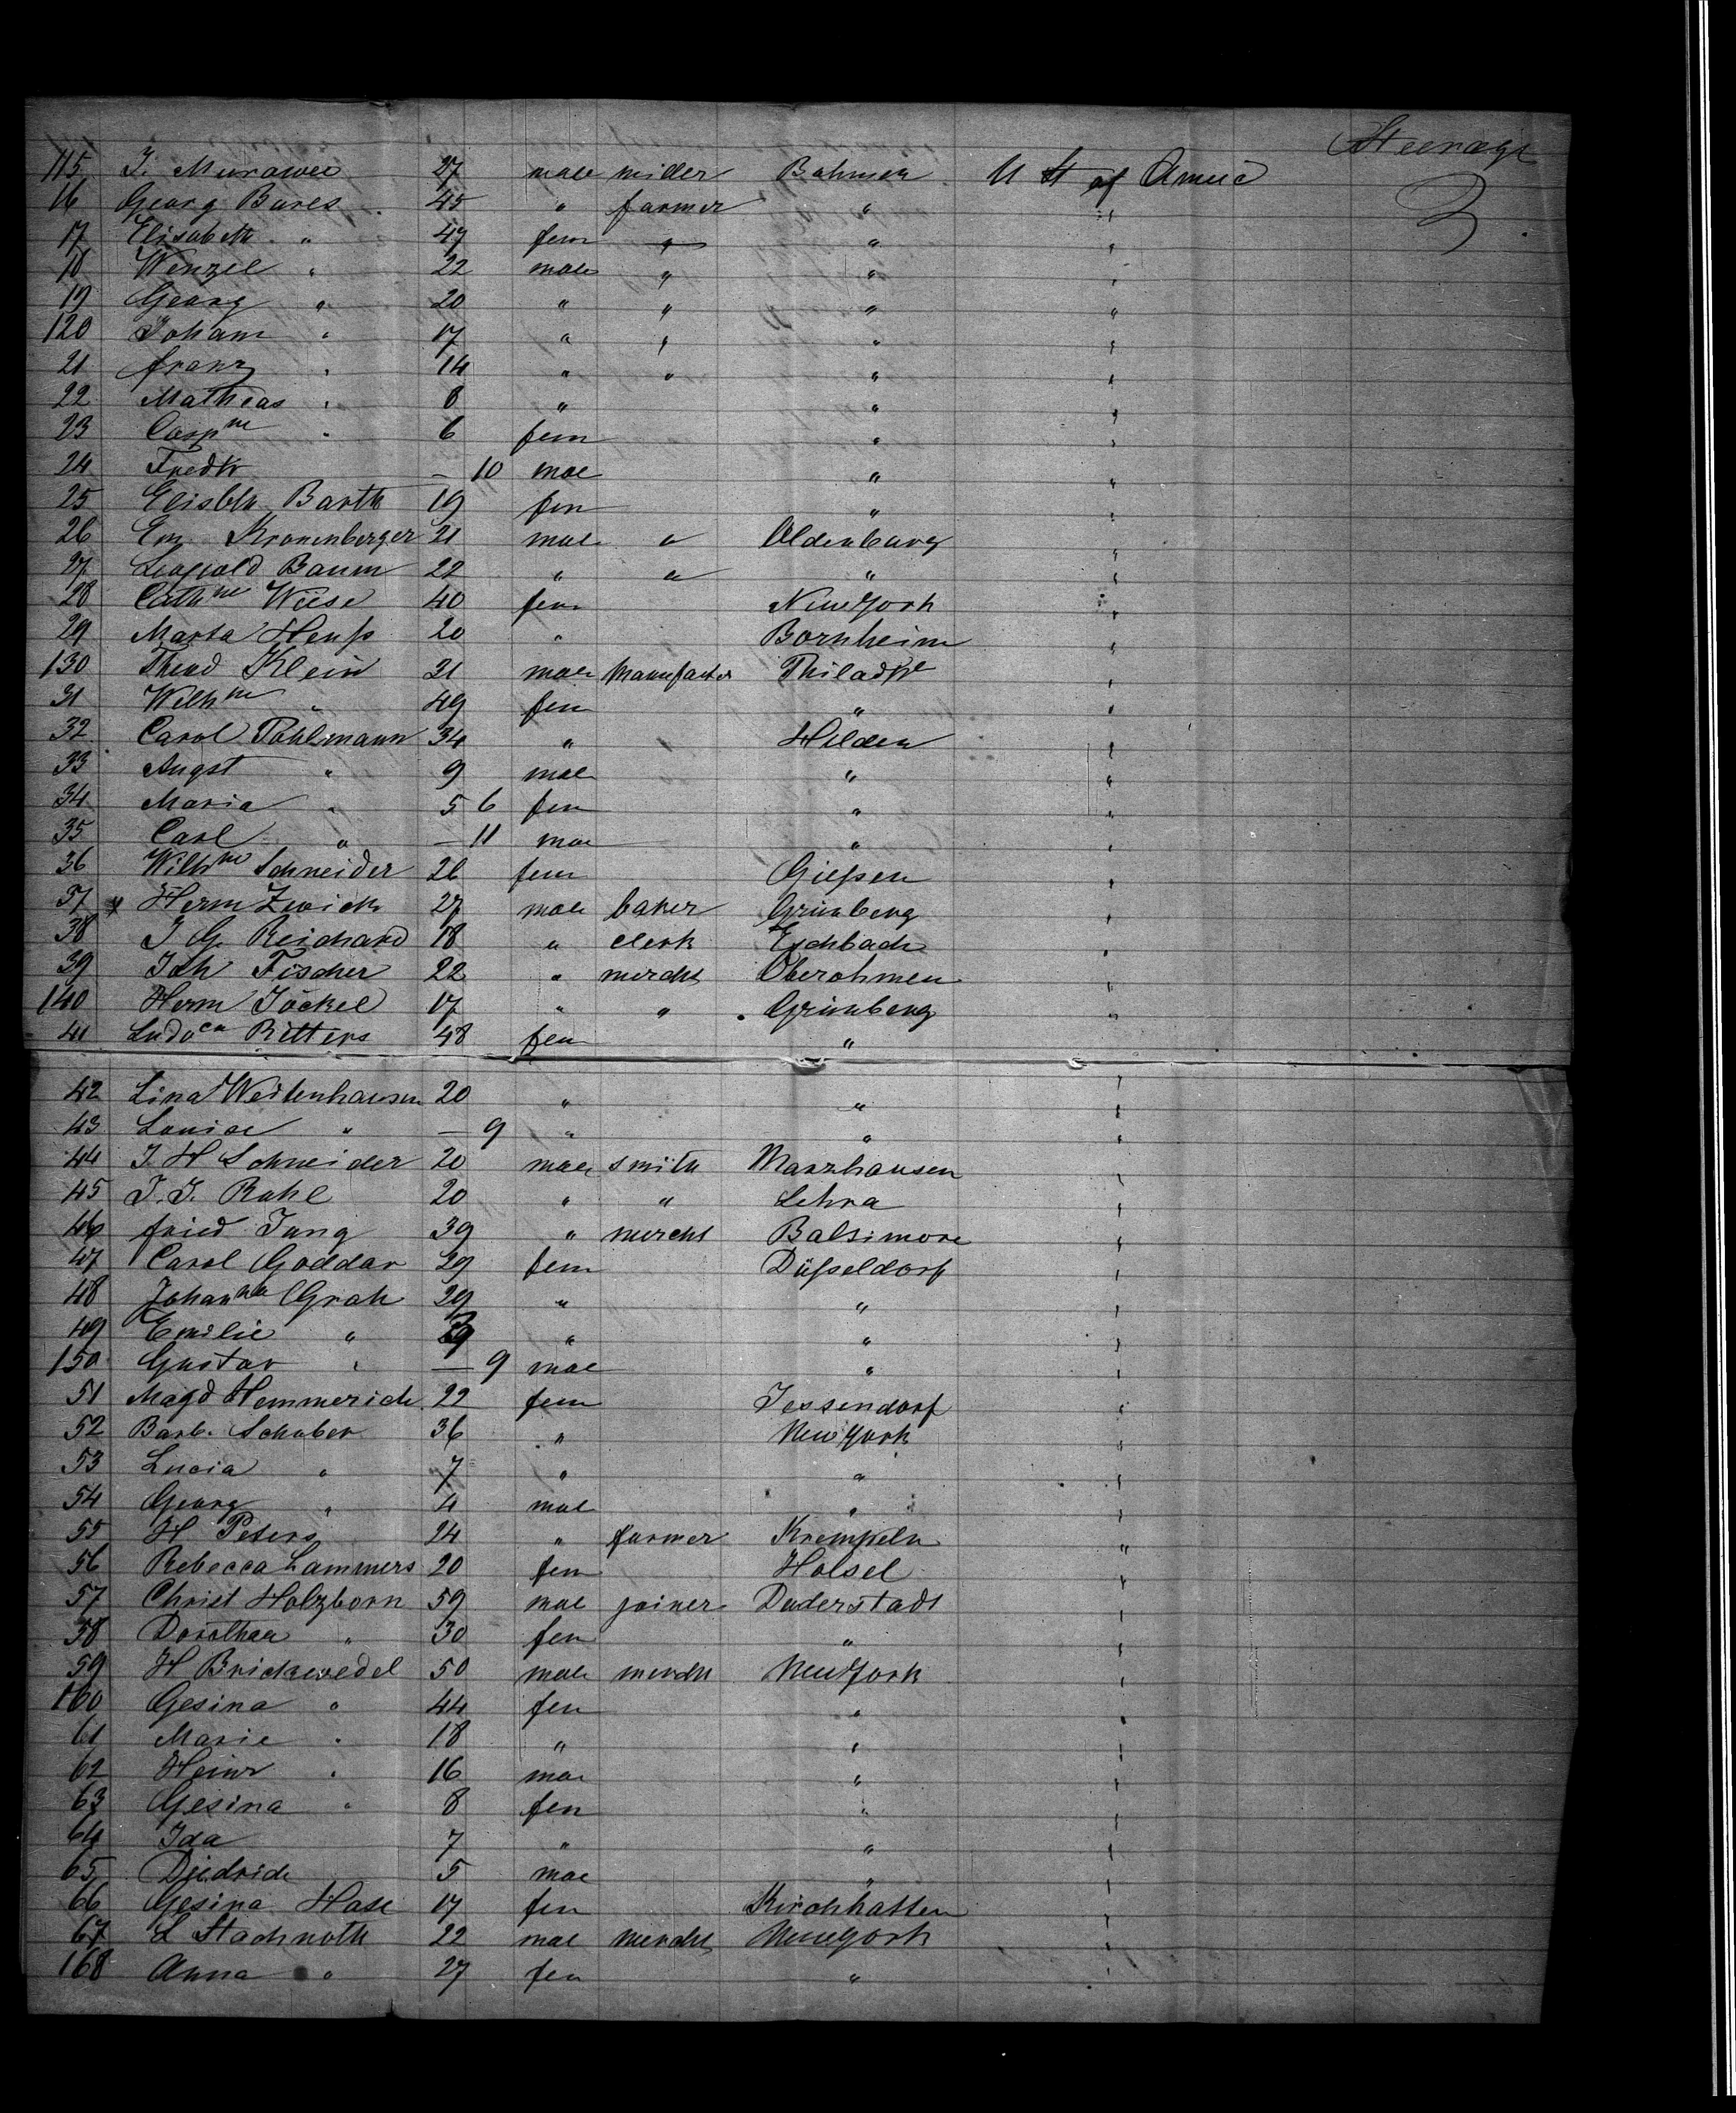 Steerage
3
115 J. Murawec 27 male miller Bohmen U St of Americ
16 Georg Bures 45 " farmer " "
17 Elisabeth " 47 fem " " "
18 Wenzel " 22 male " " "
19 Georg " 20 " " " "
120 Johann " 17 " " " "
21 Franz " 14 " " " "
22 Mathias " 8 " " "
23 Casp ne " 6 fem " "
24 Fredk — 10 mae " "
25 Elisbth Barth 19 fem " "
26 Em Kronenberger 21 male " Oldenburg "
27 Leopold Baum 22 " " " "
28 Cathne Wiese 40 fem New York "
29 Marta Heuß 20 " Bornheim "
130 Theod Klein 21 male Manufactor Philadle "
31 Wilhne " 49 fem " "
32 Carol Pohlmann 34 " Hilden "
33 Augst " 9 male " "
34 Maria " 5 6 fem " "
35 Carl " — 11 mae " "
36 Wilhne Schneider 26 fem Gießen "
37 x Herm Zwick 27 male baker Grünberg "
38 J. G. Reichard 18 " clerk Eschbach "
39 Joh Fischer 22 " mercht Oberohmen "
140 Herm Jöckel 17 " " Grünberg "
41 Ludoca Ritters 48 fem " "
42 Lina Weitenhausen 20 " " "
43 Louise " — 9 " " "
44 J. H Schneider 20 male smith Marzhausen "
45 J. J. Rahl 20 " " Lehra "
46 Fried Jung 39 " mercht Baltimore "
47 Carol Goddar 29 fem Düßeldorf "
48 Johanna Grah 29 " " "
49 Emilie " " " "
150 Gustav " — 9 mae " "
51 Magd Hemmerich 22 fem Jessendorf "
52 Barb. Schuber 36 " New York "
53 Lucia " 7 " " "
54 Georg " 4 mae " "
55 H Peters 24 " farmer Krempeln "
56 Rebecca Lammers 20 fem Holsel "
57 Christ Holzborn 59 mae joiner Duderstadt "
58 Dorothea " 30 fem " "
59 H Brickwedel 50 male mercht New York "
160 Gesina " 44 fem " "
61 Marie " 18 " " "
62 Heinr " 16 mae " "
63 Gesina " 8 fem " "
64 Ida 7 " " "
65 Diedrich 5 mae " "
66 Gesina Hase 17 fem Kirchhatten "
67 L Stachnoth 22 mae mercht New York "
168 Anna " 27 fem " "